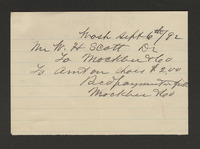 Wash Sept 6th/92
Mr W. H. Scott Dr
To Mockbee & Co
To Amt on Shoes $2.00
Recd payment in full
Mockbee & Co